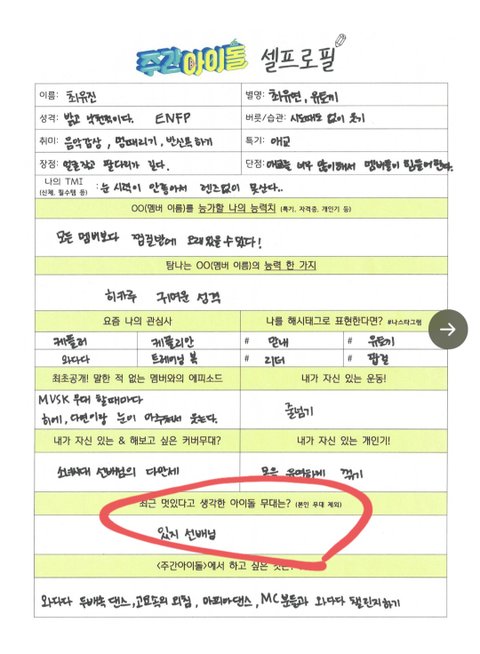 주간아이돌 셀프로필
이름: 최유진
별명: 최유연, 유토끼
성격: 밝고 낙천적이다. ENFP
버릇/습관: 시도때도 없이 웃기
취미: 음악감상, 멍때리기, 반신욕 하기
특기: 애교
장점: 얼굴작고 팔다리가 길다.
단점: 애교를 너무 많이해서 멤버들이 힘들어한다.
나의 TMI : 눈 시력이 안좋아서 렌즈없이 못산다..
(신체, 필수템 등)
OO(멤버 이름)를 능가할 나의 능력치 (특기, 자격증, 개인기 등)
모든 멤버보다 찜질방에 오래있을 수 있다!
탐나는 OO(멤버 이름)의 능력 한 가지
히카루 귀여운 성격
요즘 나의 관심사
나를 해시태그로 표현한다면? #나스타그램
케플러 케플리안 # 맏내 # 유토끼
와다다 트레이닝 복 # 리더 # 팝걸
최초공개! 말한 적 없는 멤버와의 에피소드
내가 자신 있는 운동!
MVSK 무대 할때마다
히에, 다연이랑 눈이 마주쳐서 웃는다.
줄넘기
내가 자신 있는 & 해보고 싶은 커버무대?
내가 자신 있는 개인기!
소녀시대 선배님의 다만세
몸을 유연하게 꺾기
최근 멋있다고 생각한 아이돌 무대는? (본인 무대 제외)
있지 선배님
<주간아이돌>에서 하고 싶은 것은?
와다다 두배속 댄스, 고요속의 외침, 마피아댄스, MC분들과 와다다 챌린지하기